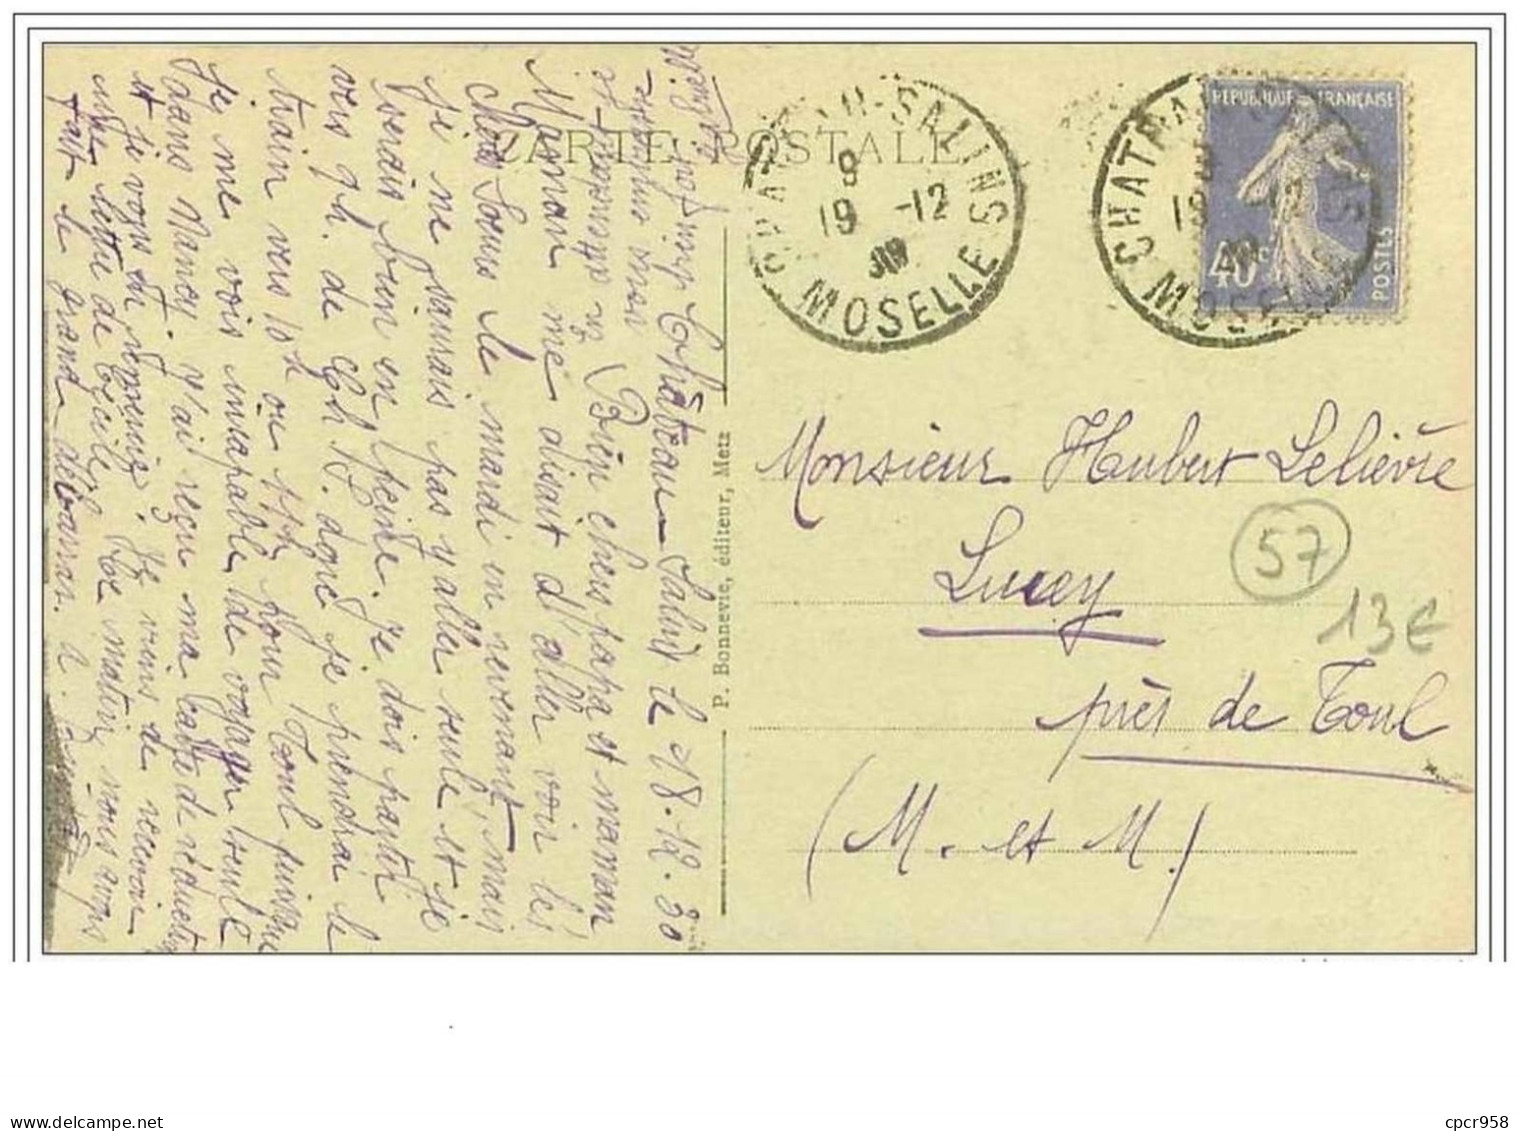 CARTE POSTALE
Château-Salins le 18.12.30
Bien chers papa et maman
Maman me disait d'aller voir les
chères Soeurs le mardi en revenant, mais
je ne saurais pas y aller seule et je
serais bien en peine. Je dois partir
vers 9h. de Ch S. donc je prendrai le
train vers 10h ou 11h pour Toul puisque
je me vois incapable de voyager seule
dans Nancy. J'ai reçu ma carte de réduction
et je voyage Je viens de recevoir
une lettre de Cécile. Ce matin nous avons
fait le grand débarras.
P. Bonnevie, éditeur, Metz
CHATEAU-SALINS
8
19 -12
30
MOSELLE
CHATEAU-SALINS
19 -12
30
MOSELLE
REPUBLIQUE FRANÇAISE
40c
POSTES
Monsieur Hubert Lelièvre
Lucey
près de Toul
(M. et M.)
57
13€
cpcr958